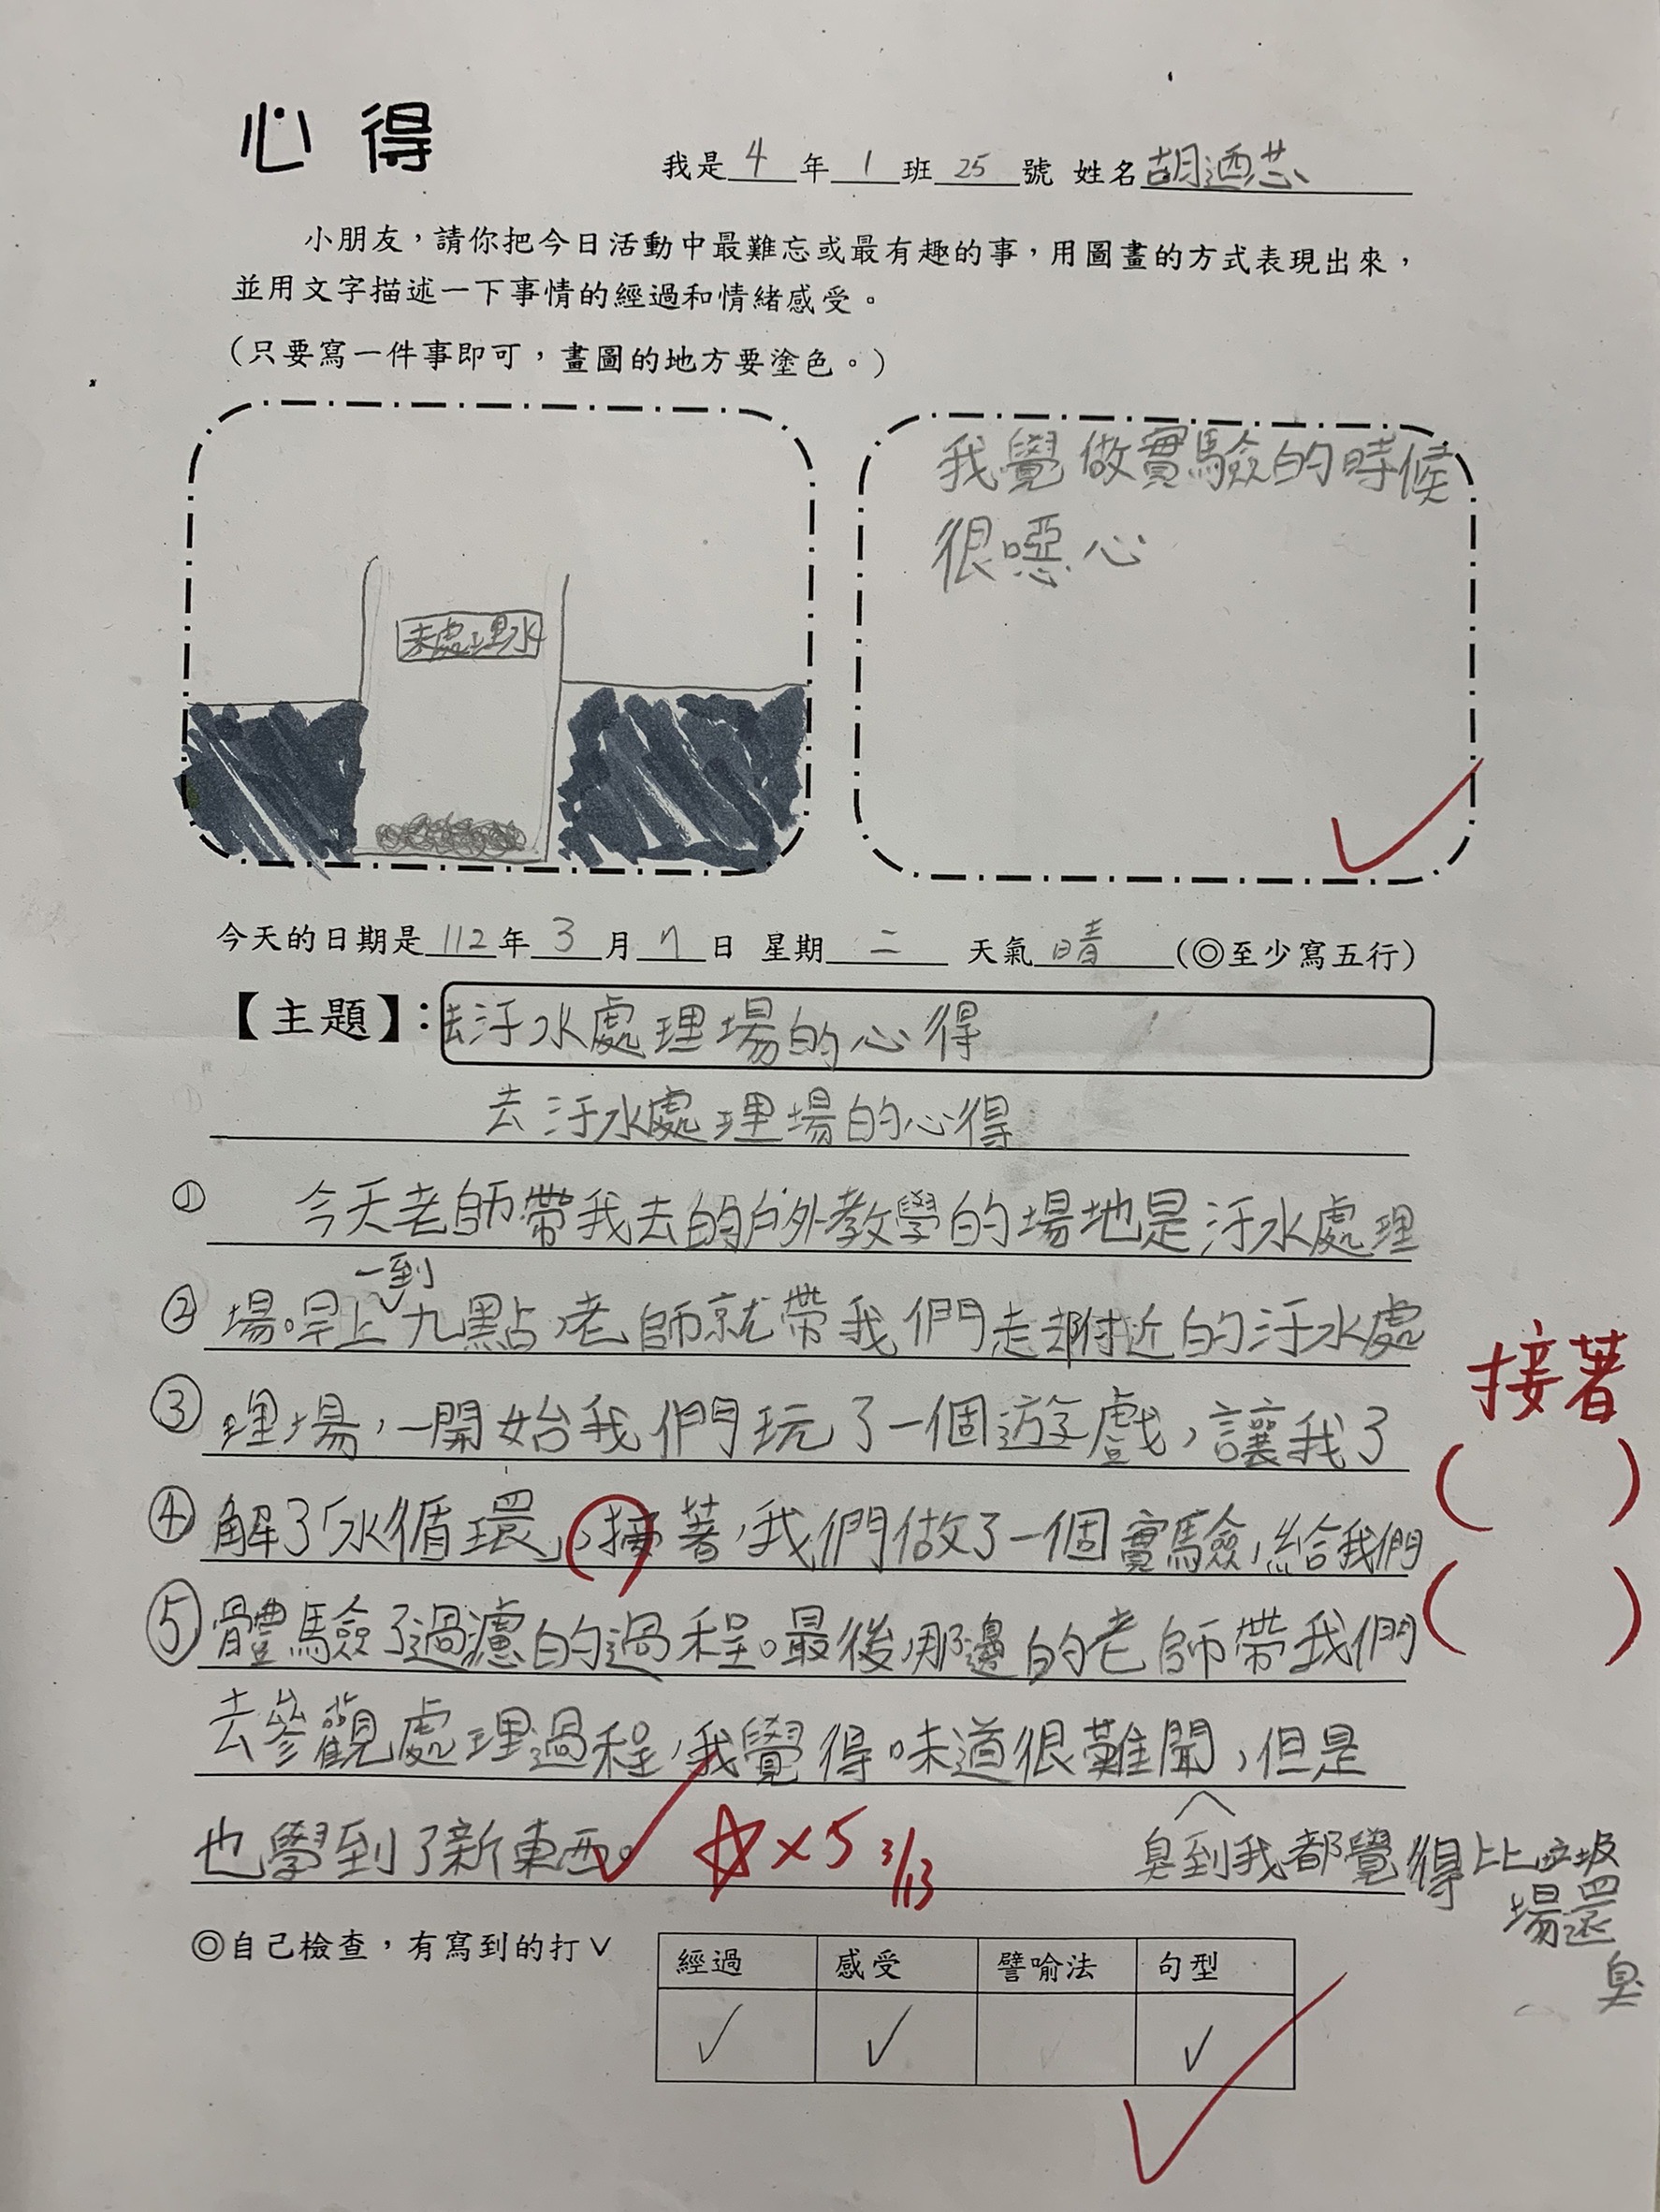 心得
我是4年1班25號 姓名胡迺芯
小朋友，請你把今日活動中最難忘或最有趣的事，用圖畫的方式表現出來，
並用文字描述一下事情的經過和情緒感受。
（只要寫一件事即可，畫圖的地方要塗色。）
未處理水
我覺做實驗的時候
很噁心
今天的日期是112年3月7日 星期二 天氣晴（◎至少寫五行）
【主題】：去汙水處理場的心得
去汙水處理場的心得
① 今天老師帶我去的戶外教學的場地是汙水處理
一到
② 場。早上九點，老師就帶我們走去附近的汙水處
③ 理場，一開始我們玩了一個遊戲，讓我了
接著
( )
④ 解了「水循環」，接著，我們做了一個實驗，給我們
( )
⑤ 體驗了過濾的過程。最後，那邊的老師帶我們
去參觀處理過程，我覺得味道很難聞，但是
也學到了新東西。
☆×5 3/13
臭到我都覺得比垃圾
場還
臭
◎自己檢查，有寫到的打ˇ
經過 感受 譬喻法 句型
✓ ✓ ✓